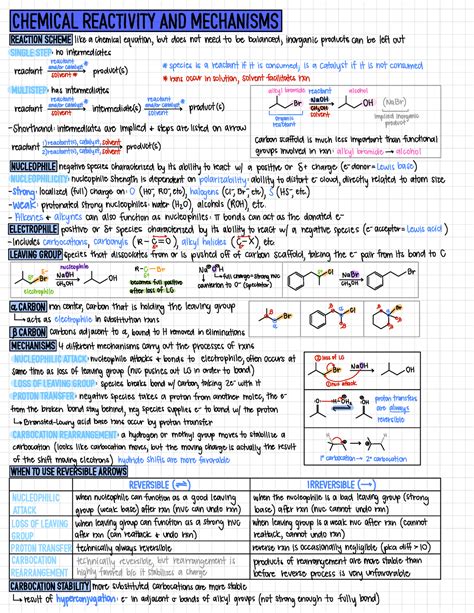 CHEMICAL REACTIVITY AND MECHANISMS
REACTION SCHEME: like a chemical equation, but does not need to be balanced, inorganic products can be left out
SINGLE STEP: no intermediates
reactant reactant and/or catalyst* solvent* product(s)
* species is a reactant if it is consumed, is a catalyst if it is not consumed
* rxns occur in solution, solvent facilitates rxn
MULTISTEP: has intermediates
reactant reactant and/or catalyst* solvent* intermediate(s) reactant and/or catalyst* solvent* product(s)
-Shorthand: intermediates are implied + steps are listed on arrow
reactant 1) reactant(s), catalyst, solvent 2) reactant(s), catalyst, solvent product(s)
alkyl bromide reactant alcohol
Br NaOH CH₃OH OH (NaBr)
organic reactant solvent implied inorganic product
Carbon scaffold is much less important than functional
groups involved in rxn: alkyl bromide → alcohol
NUCLEOPHILE: negative species characterized by its ability to react w/ a positive or δ+ charge (e⁻ donor = Lewis base)
NUCLEOPHILICITY: nucleophile strength is dependent on polarizability: ability to distort e⁻ cloud, directly related to atom size
-strong: localized (full) charge on O (HO⁻, RO⁻, etc), halogens (Cl⁻, Br⁻, etc), S (HS⁻, etc)
-weak: protonated strong nucleophiles: water (H₂O), alcohols (ROH), etc
-Alkenes + alkynes can also function as nucleophiles: π bonds can act as the donated e⁻
ELECTROPHILE: positive or δ+ species characterized by its ability to react w/ a negative species (e⁻ acceptor = Lewis acid)
-Includes carbocations, carbonyls (R-C=O), alkyl halides (C-X), etc
LEAVING GROUP: species that dissociates from or is pushed off of carbon scaffold, taking the e⁻ pair from its bond to C
nucleophile
Br NaOH CH₃OH OH
R-C-Br
becomes full positive after loss of LG
Na⁺ OH
full charge = strong nuc
counterion to O⁻ (spectator)
Cl NaOH CH₃OH OH
NaBr CH₃OH Br
α CARBON: rxn center, carbon that is holding the leaving group
↳ acts as electrophile in substitution rxns
β CARBON: carbons adjacent to α, bound to H removed in eliminations
MECHANISMS: 4 different mechanisms carry out the processes of rxns
NUCLEOPHILIC ATTACK: nucleophile attacks + bonds to electrophile, often occurs at
same time as loss of leaving group (nuc pushes out LG in order to bond)
LOSS OF LEAVING GROUP: species breaks bond w/ carbon, taking 2e⁻ with it
PROTON TRANSFER: negative species takes a proton from another molec, the e⁻
from the broken bond stay behind, neg species supplies e⁻ to bond w/ the proton
↳ Bronsted-Lowry acid base rxns occur by proton transfer
CARBOCATION REARRANGEMENT: a hydrogen or methyl group moves to stabilize a
carbocation (looks like carbocation moves, but the moving charge is actually the result
of the shift moving electrons) hydride shifts are more favorable
① loss of LG
Br NaOH OH
② nuc attack
proton transfers are always reversible
1° carbocation → 2° carbocation
WHEN TO USE REVERSIBLE ARROWS
REVERSIBLE (⇌) IRREVERSIBLE (→)
NUCLEOPHILIC ATTACK
when nucleophile can function as a good leaving group (weak base) after rxn (nuc can undo rxn)
when the nucleophile is a bad leaving group (strong base) after rxn (nuc cannot undo rxn)
LOSS OF LEAVING GROUP
when leaving group can function as a strong nuc after rxn (can reattack + undo rxn)
when leaving group is a weak nuc after rxn (cannot reattack, cannot undo rxn)
PROTON TRANSFER
technically always reversible
reverse rxn is occasionally negligible (pka diff > 10)
CARBOCATION REARRANGEMENT
technically reversible, but rearrangement is highly favored bic it stabilizes a charge
products of rearrangement are more stable than before reverse process is very unfavorable
CARBOCATION STABILITY: more substituted carbocations are more stable
↳ result of hyperconjugation: e⁻ in adjacent σ bonds of alkyl groups (not strong enough to fully bond)